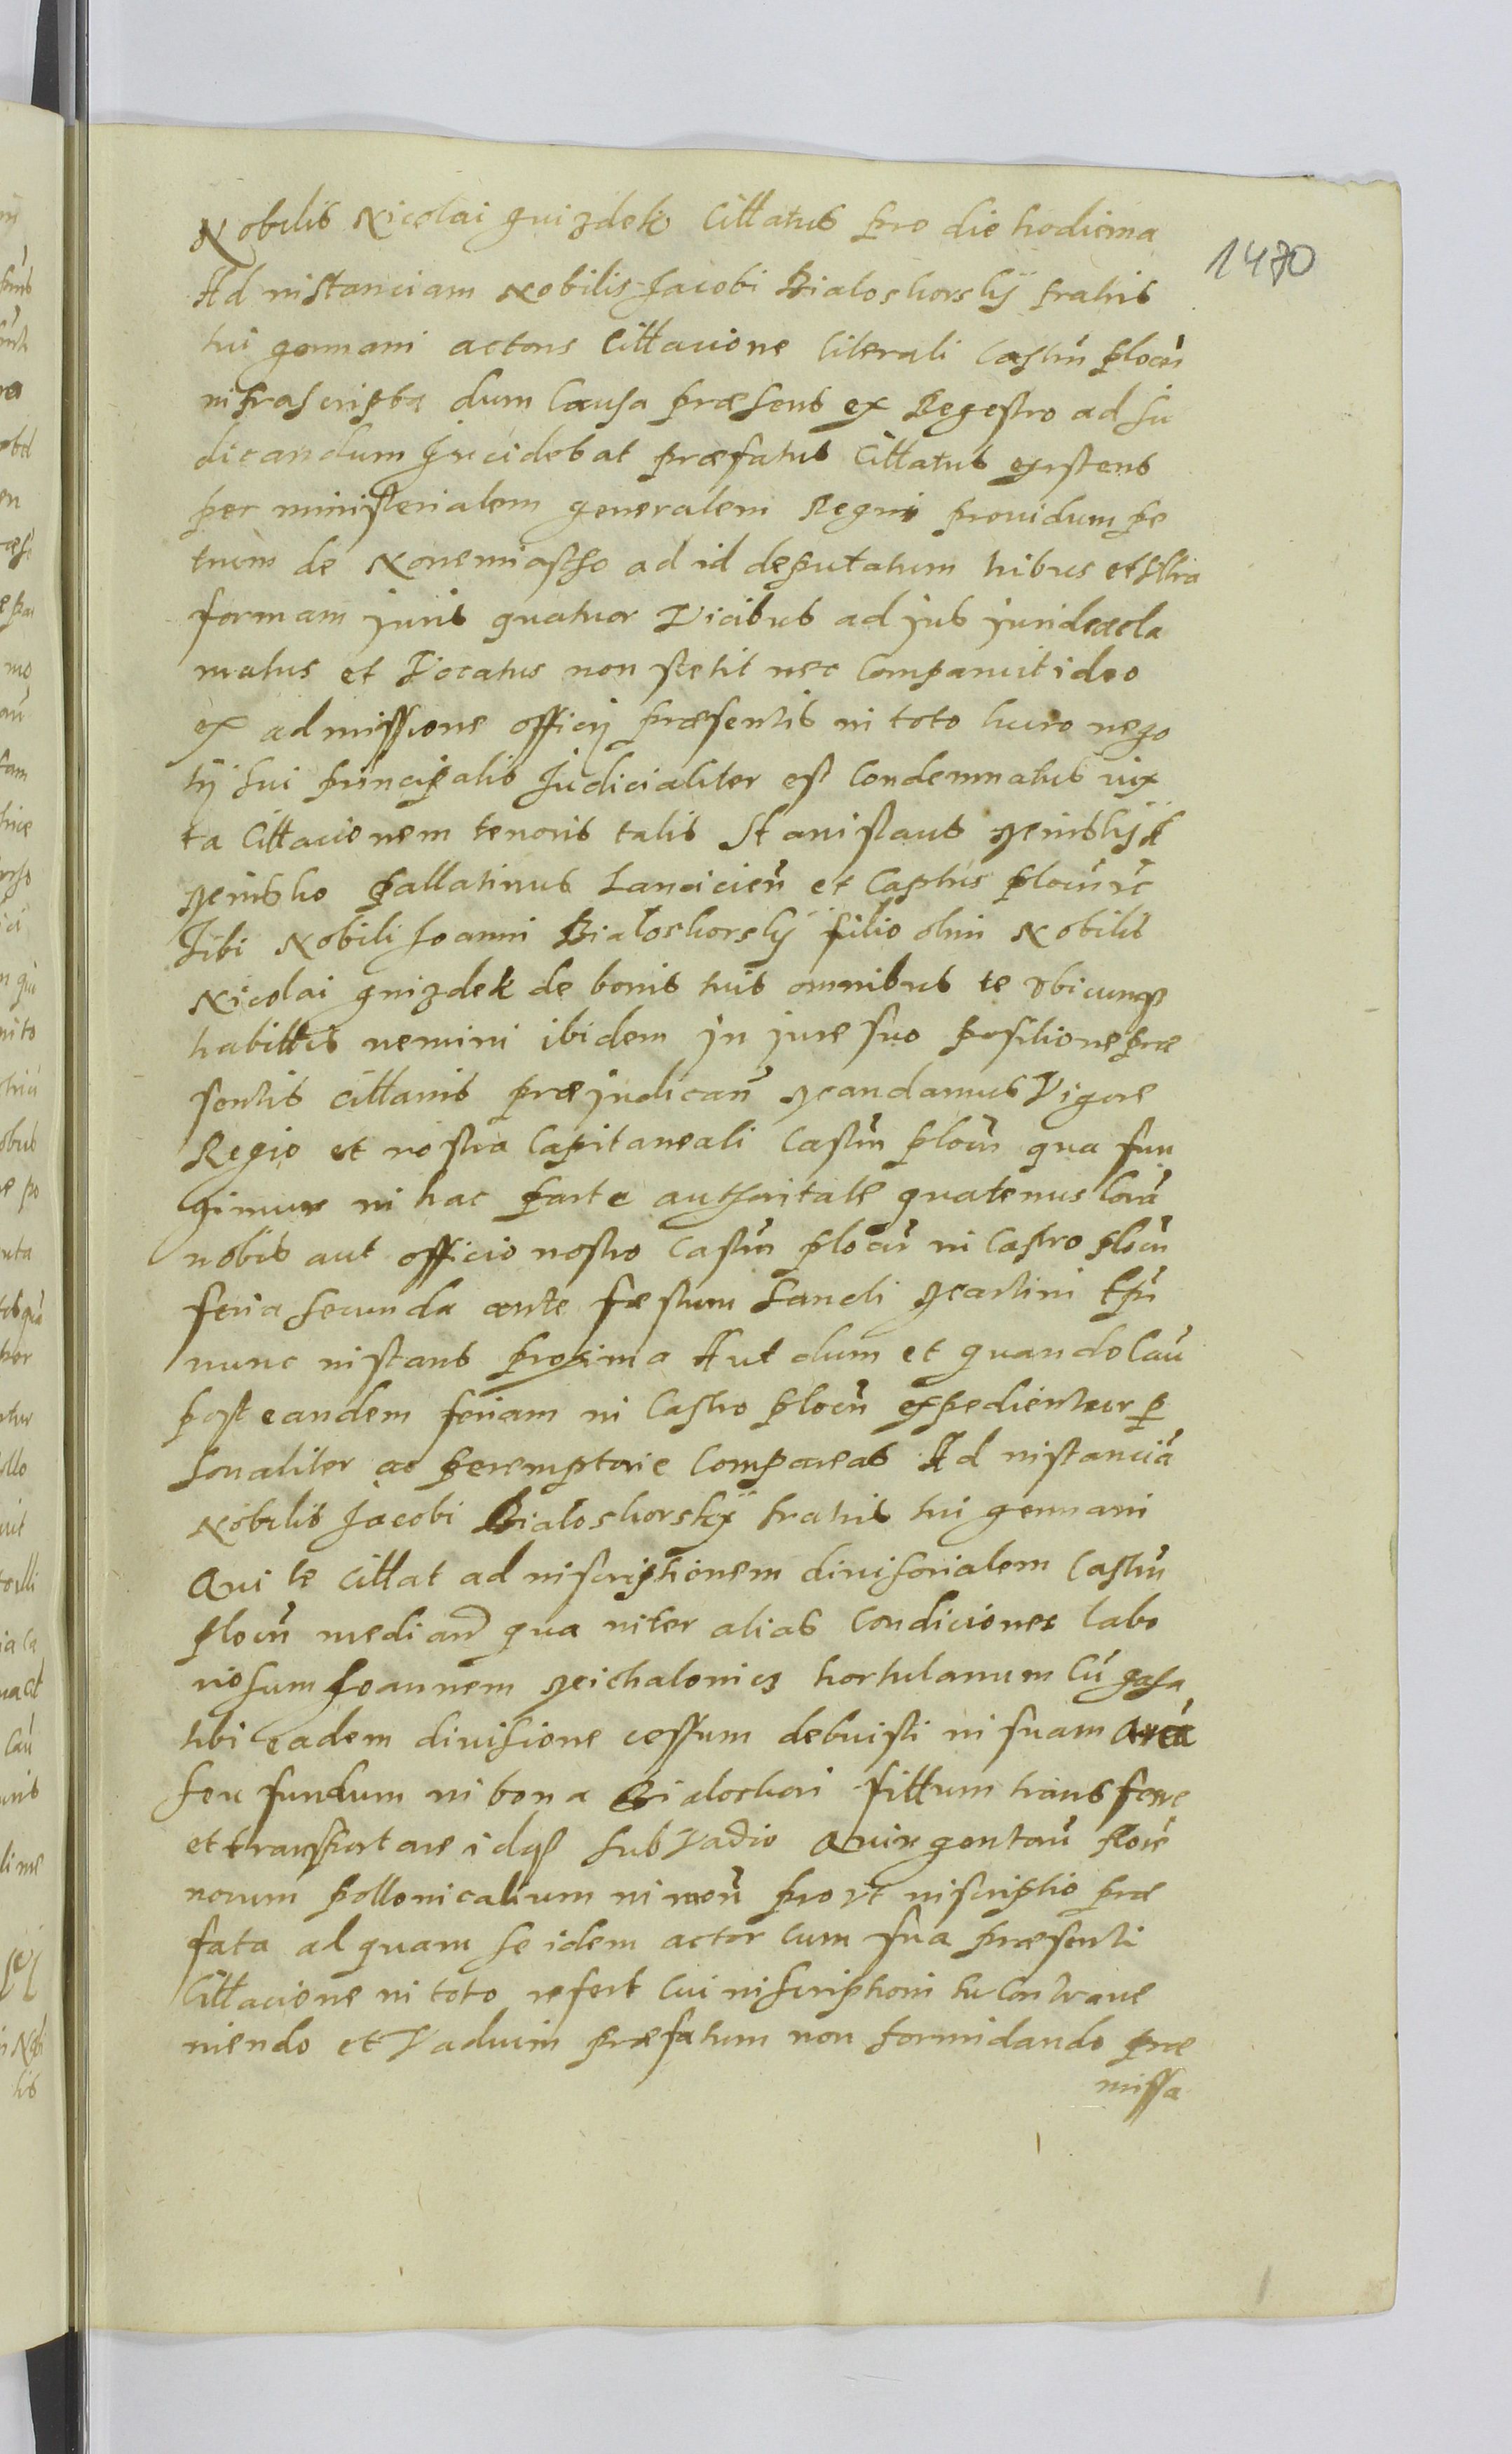 Nobilis Nicolai gnizdek Cittatus pro die hodierna
1470
Ad instanciam Nobilis Jacobi Bialoskorskÿ fratris
tui germani actoris Cittacione literali Castrñ plocñ
infrascripta dum Causa præsens ex Regestro ad Ju
dicandum Incidebat præfatus Cittatus existens
per ministerialem generalem Regni prouidum pe
trum de Nouemiastho ad id deputatum tribus et Vltra
formam juris quatuor Vicibus ad jus jurideacla
matus et Vocatus non stetit nec Comparuit ideo
ex admissione officij præsentis in toto lucro nego
tij sui principalis Judicialiter est Condemnatus iux
ta Cittacionem tenoris talis Stanislaus Meinskÿ
Meinsko pallatinus Lancicien̄ et Captus plocñ
Tibi Nobili Joanni Bialoskorskÿ filio olim Nobilis
Nicolai gnizdek de bonis tuis omnibus te vbicunqȝ
habittis nemini ibidem jn jure suo positione præ
sentis cittanis præjudican̄ Mandamus Vigore
Regio et nostra Capitaneali Castrn̄ plocn̄ qua fun
gimur in hac parte authoritate quatenus Corā
nobis aut officio nostro Castrn̄ plocn̄ in Castro plocn̄
feria secunda ante festum Sancti Martini Epī
nunc instans proxima Aut dum et quando Cau
post eandem feriam in Castro plocn̄ expedientur p
sonaliter ac peremptorie Compareas Ad instanciā
Nobilis Jacobi Bialoskorskÿ fratris tui germani
Qui te cittat ad inscriptionem diuisorialem Castrn̄
plocn̄ median̄ qua inter alias Condiciones labo
riosum Joannem Michalouicz hortulanum Cū gasa
tibi eadem diuisione cessum debuisti in suam Areā
seu fundum in bona Bialoskori sittum transferre
et transportare idqȝ sub Vadio Quingentarū flore
norum pollonicalium in mon̄ provt inscriptio præ
fata ad quam se idem actor cum sua præsenti
Cittacione in toto refert Cui inscriptioni tu Contraue
niendo et Vadium præfatum non formidando præ
missa